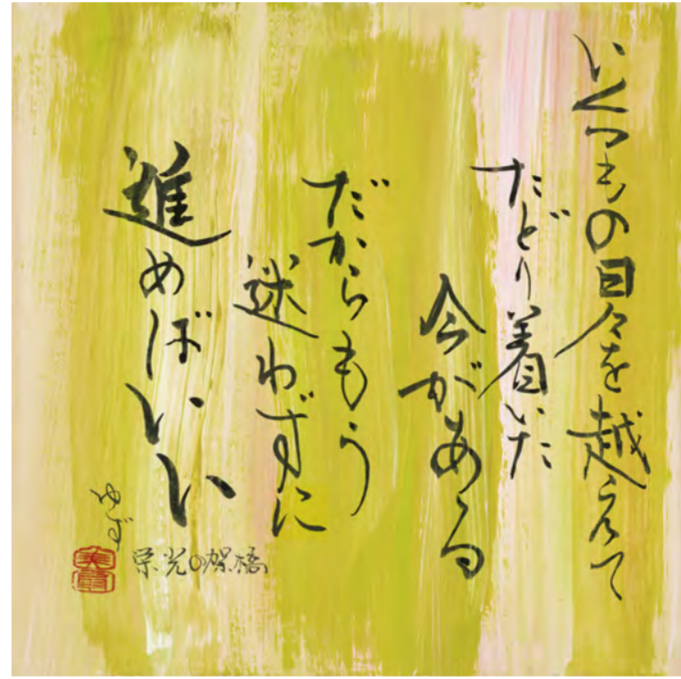 いくつもの日々を越えて
たどり着いた
今がある
だからもう
迷わずに
進めばいい
栄光の架橋
ゆず